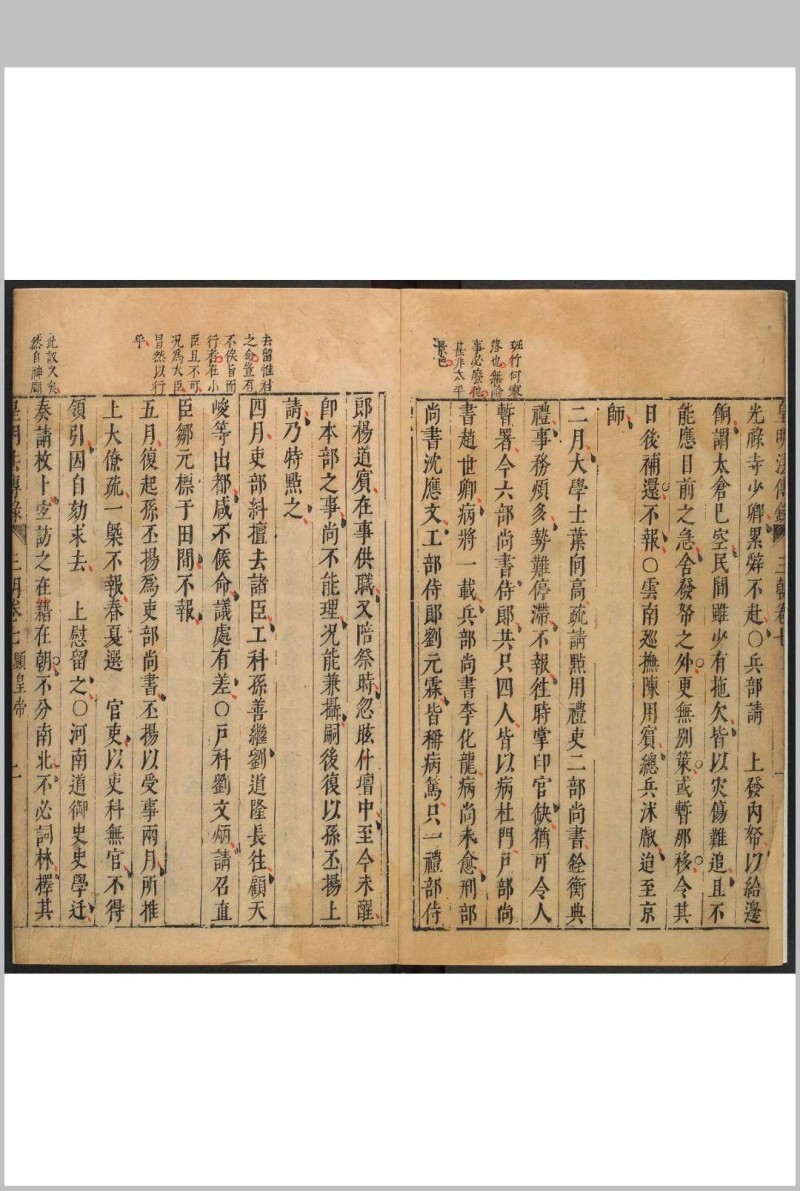 班行何寥
落也無論
事必廢弛
甚非太平
景色
光祿寺少卿累辭不赴○兵部請　上發內帑以給邊
餉謂太倉已空民間雖少有拖欠皆以災傷難追且不
能應目前之急舍發帑之外更無別策或暫那移令其
日後補還不報○雲南廵撫陳用賓總兵沐叡廹至京
師
二月大學士葉向高疏請點用禮吏二部尚書銓衡典
禮事務煩多勢難停滯不報徃時掌印官缺猶可令人
暫署今六部尚書侍郎共只四人皆以病杜門戶部尚
書趙世卿病將一載兵部尚書李化龍病尚未愈刑部
尚書沈應文工部侍郎劉元霖皆稱病篤只一禮部侍
去留惟君
之命豈有
不俟旨而
行者在小
臣且不可
况爲大臣
冐然以行
乎
此說又矣
然自神廟
郎楊道賓在事供職又陪祭時忽眩仆壇中至今未醒
卽本部之事尚不能理况能兼攝嗣後復以孫丕揚上
請乃特點之
四月吏部糾擅去諸臣工科孫善繼劉道隆長徃顧天
峻等出都咸不候命議處有差○戶科劉文炳請召直
臣鄒元標于田間不報
五月復起孫丕揚爲吏部尚書丕揚以受事兩月所推
上大僚疏一槩不報春夏選　官吏以吏科無官不得
領引因自劾求去　上慰留之○河南道御史史學迁
奏請枚卜宜訪之在籍在朝不分南北不必詞林擇其
皇明法傳錄　三朝卷七　顯皇帝